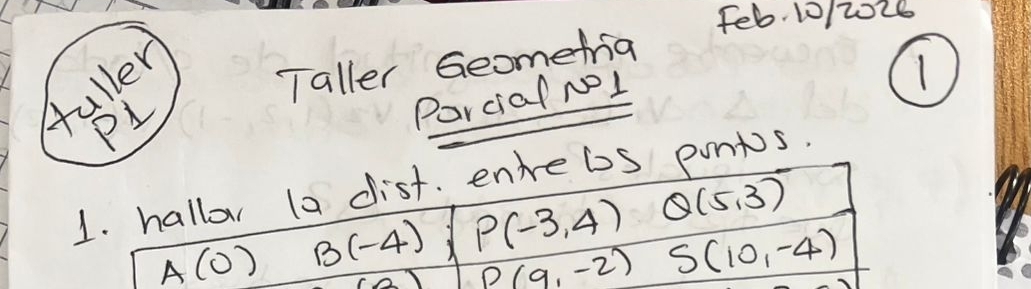 Feb. 10/2026
taller
P1
Taller Geometría
Parcial Nº1
1
1. hallar la dist. entre los puntos.
A(0) B(-4) P(-3,4) Q(5,3)
P(9,-2) S(10,-4)